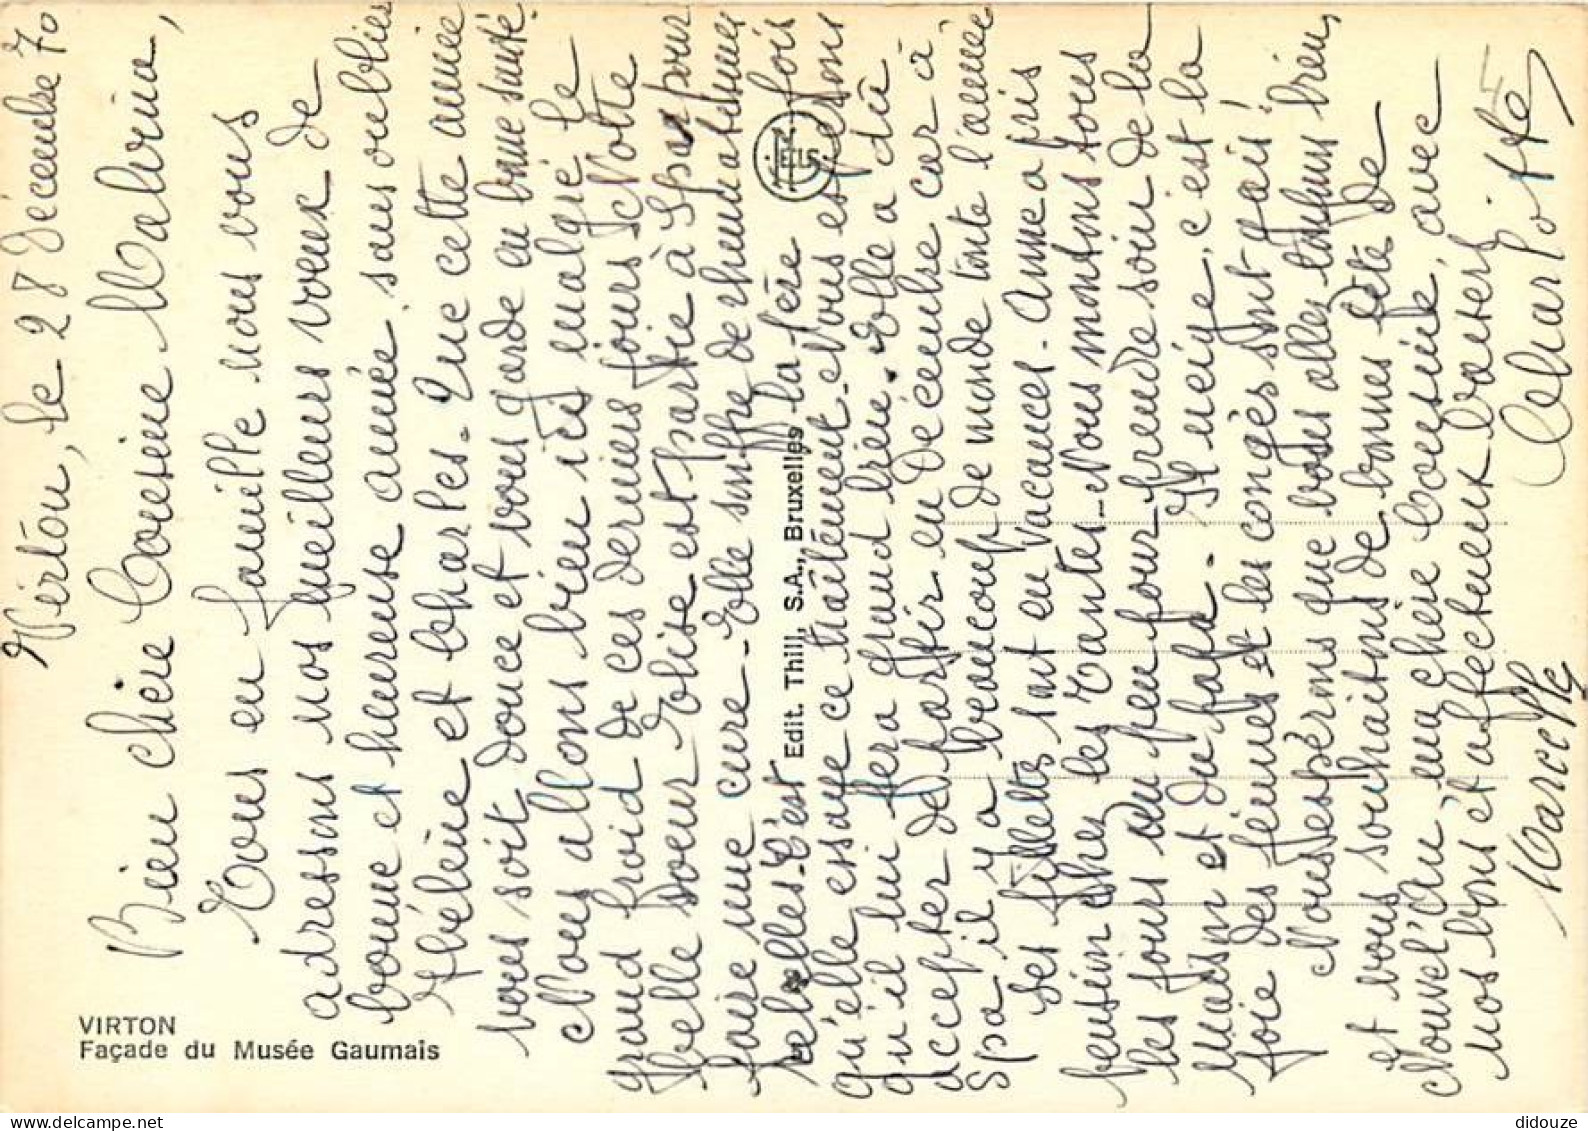 Virton, le 28 Décembre 70
Bien chère Cousine Malvina,
Tous en famille nous vous
adressons nos meilleurs voeux de
bonne et heureuse année, sans oublier
Hélène et Charles. Que cette année
vous soit douce et vous garde en bonne santé.
Nous allons bien ici malgré le
grand froid de ces derniers jours. Notre
belle soeur Elise est partie à Spa pour
faire une cure. Elle souffre de rhumatismes
rebelles. C'est la 1ère fois
qu'elle essaye ce traitement. Nous espérons
qu'il lui fera grand bien. Elle a dû
accepter de partir en Décembre car à
Spa il y a beaucoup de monde toute l'année
Ses fillettes sont en vacances. Anne a pris
pension chez les Tantes. Nous montons tous
les jours un peu pour prendre soin de la
maison et du papa. Il neige, c'est la
joie des jeunes et les congés sont gais!
Nous espérons que vous allez toujours bien,
et vous souhaitons de bonnes fêtes de
Nouvel'An, ma chère Cousine, avec
nos bons et affectueux baisers
Marcelle Char Poitte
VIRTON
Façade du Musée Gaumais
Edit. Thill, S.A., Bruxelles
didouze